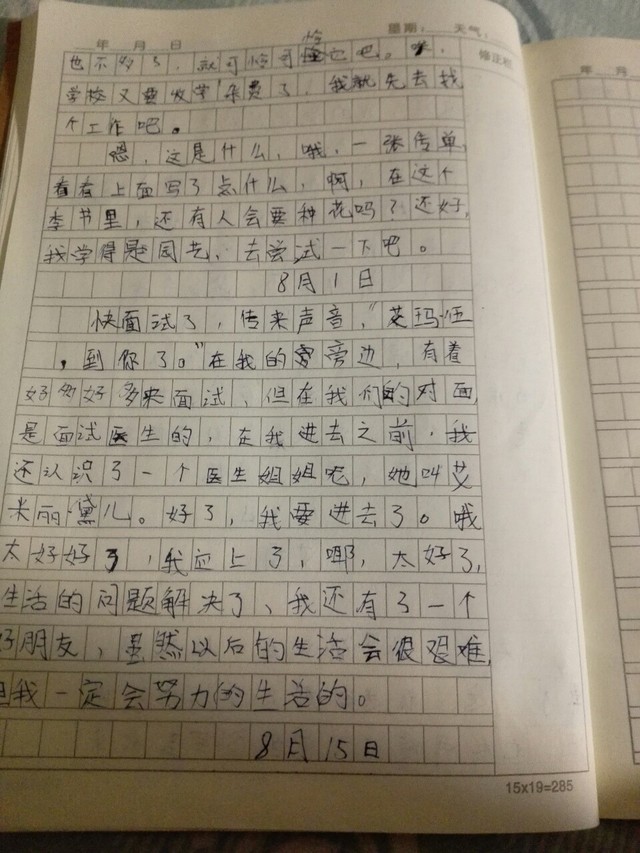 年 月 日 星期： 天气：
修正栏
年 月
怜
也不多了，就可怜可它吧。唉，
学校又要收学杂费了，我就先去找
个工作吧。
恩，这是什么，哦，一张传单，
看看上面写了点什么，啊，在这个
季节里，还有人会要种花吗？还好，
我学得是园艺，去尝试一下吧。
8月1日
快面试了，传来声音，“艾玛·
，到你了。”在我的旁边，有着
好多好多来面试，但在我们的对面
是面试医生的，在我进去之前，我
还认识了一个医生姐姐呢，她叫艾
米丽·黛儿。好了，我要进去了。哦
太好好了，我应上了，耶，太好了，
生活的问题解决了，我还有了一个
好朋友，虽然以后的生活会很艰难，
但我一定会努力的生活的。
8月15日
15x19=285